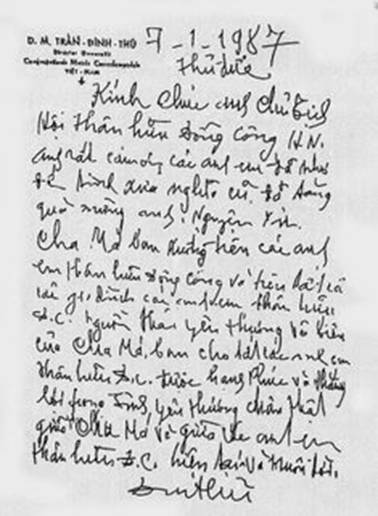 D. M. TRẦN-ĐÌNH-THỦ
Director Generalis
Congregationis Matris Coredemptricis
VIỆT-NAM
7-1-1987
Thủ Đức
Kính chúc anh chủ tịch
Hội thân hữu Đồng Công H.N.
anh rất cảm ơn các anh em đã nhớ
đến tình xưa nghĩa cũ, đã dâng
quà mừng anh! Nguyện xin
Cha Mẹ ban xuống trên các anh
em thân hữu Đồng Công và trên tất cả
các gia đình các anh em thân hữu
Đ.C. người yêu thương
của Cha Mẹ, ban cho tất các anh em
thân hữu Đ.C. được hạnh phúc và
trong tình yêu thương chân thật
giữa Cha Mẹ và giữa các anh em
thân hữu Đ.C. hiện tại và muôn đời.